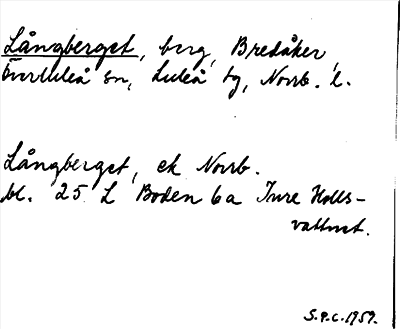 Långberget, berg, Bredåker,
Överluleå sn, Luleå tg, Norrb. l.
Långberget, ek Norrb.
bl. 25 L Boden 6a Ture Holls-
vattnet.
S.P.C. 1959.